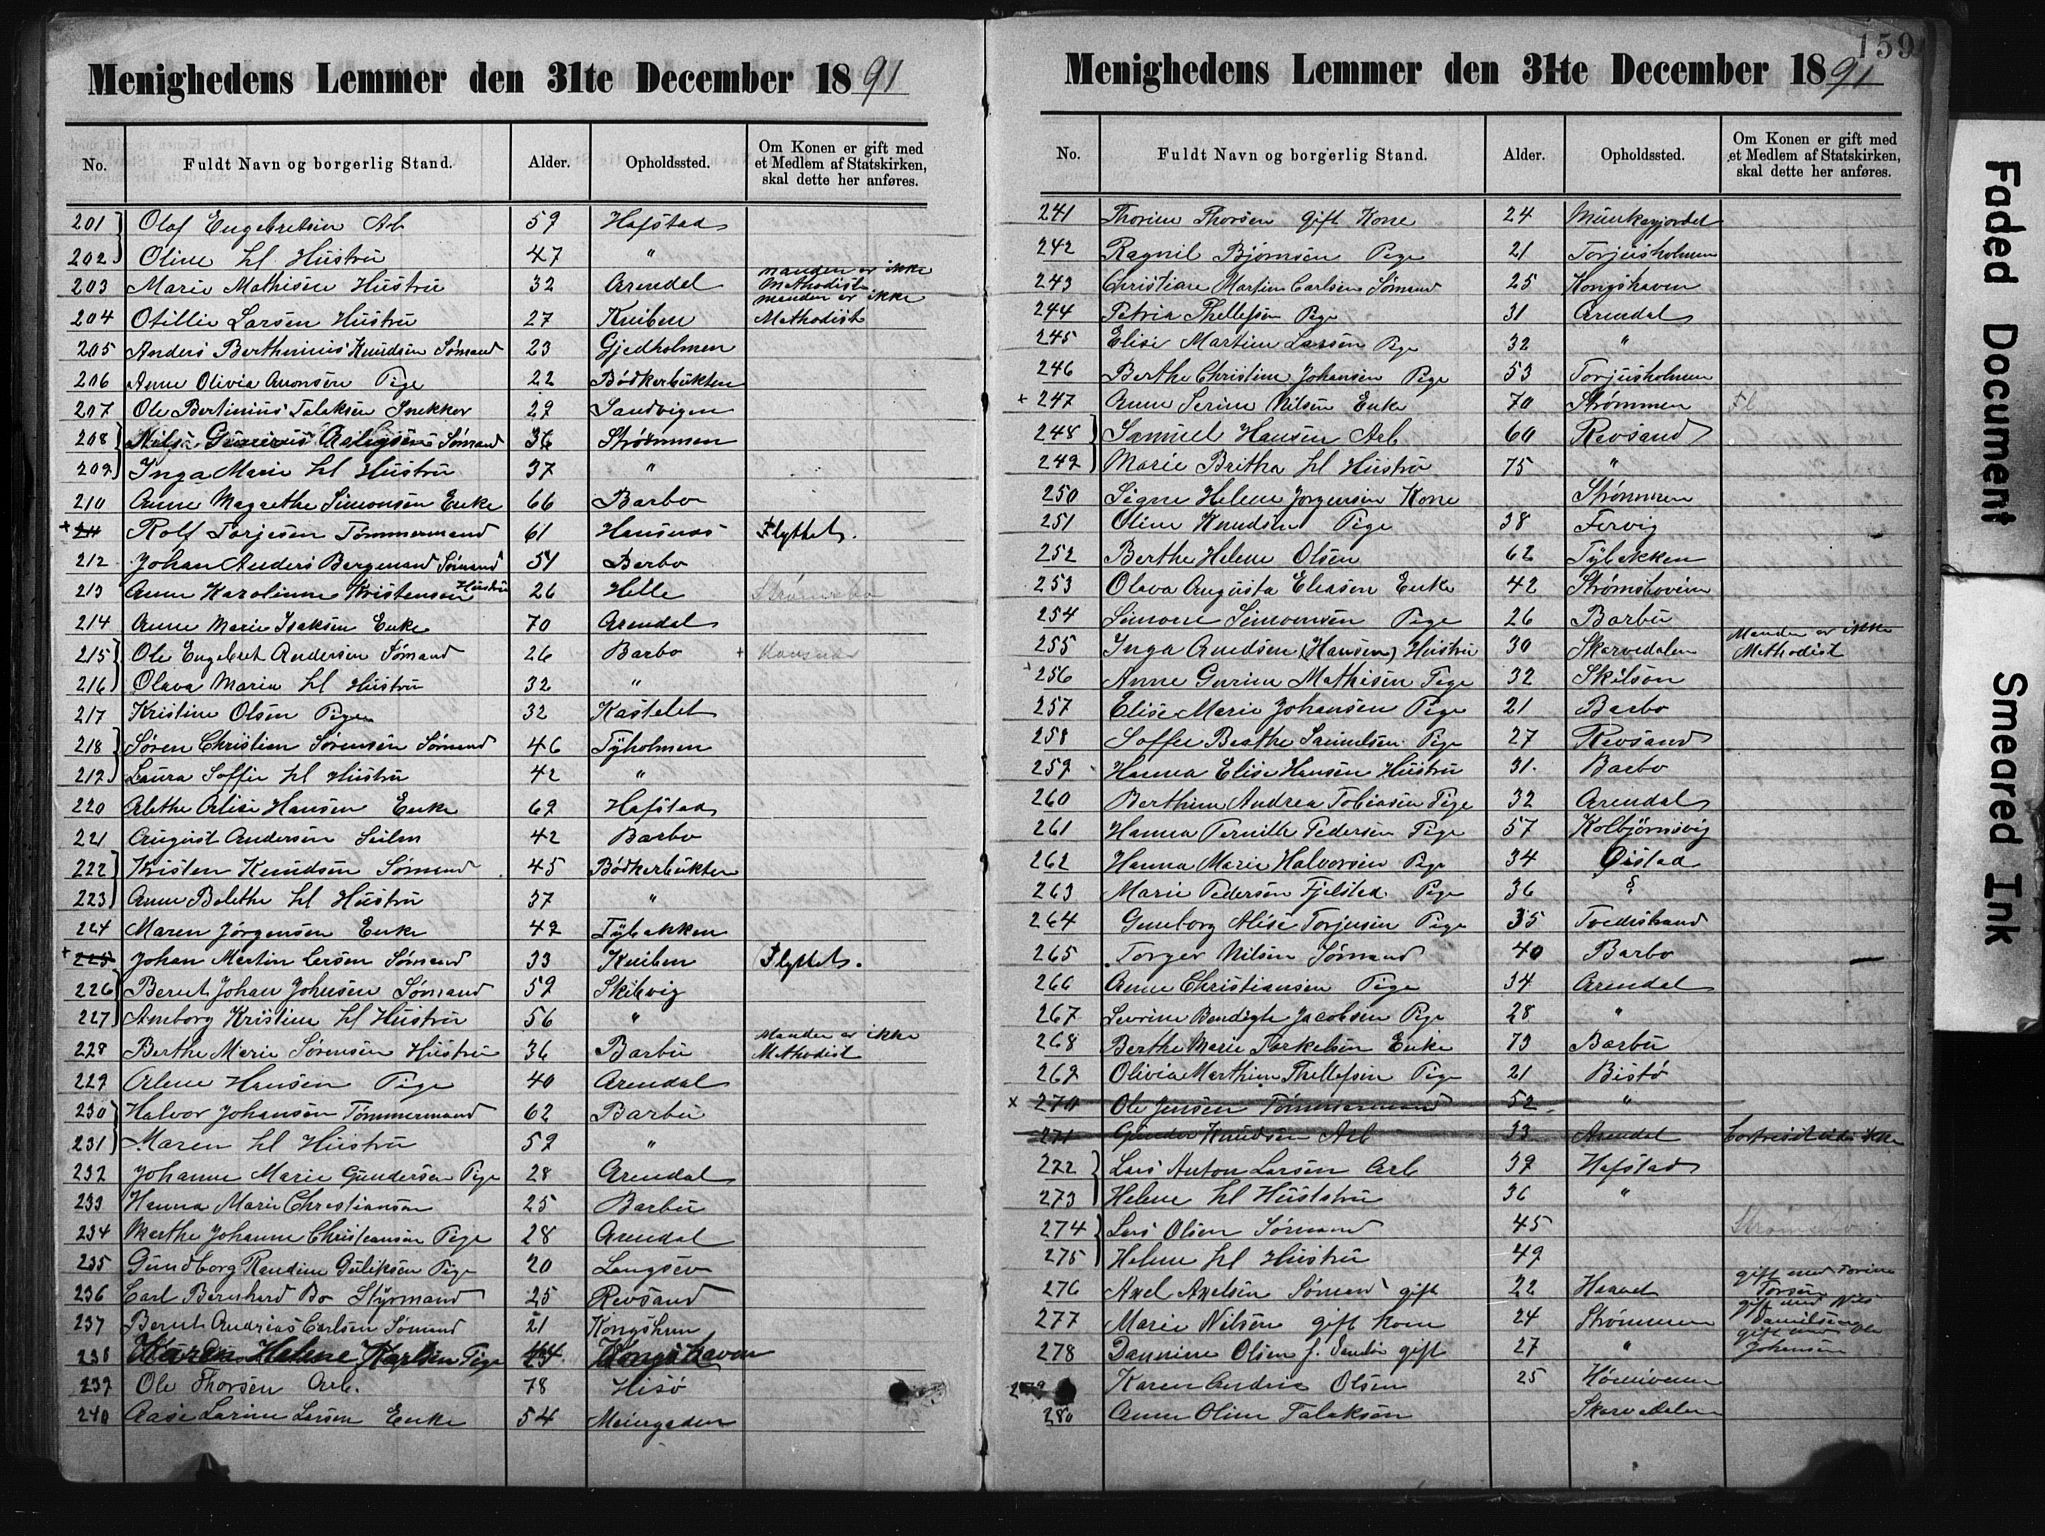 159
Menighedens Lemmer den 31te December 1891
No. Fuldt Navn og borgerlig Stand. Alder. Opholdssted. Om Konen er gift med et Medlem af Statskirken, skal dette her anføres.
201 Olaf Engebretsen Arb 59 Hafstad
202 Oline hl Hustru 47 "
203 Marie Mathisen Hustru 32 Arendal manden er ikke Methodist
204 Otillie Larsen Hustru 27 Kuiben manden er ikke Methodist
205 Anders Berthinius Knudsen Sømand 23 Gjedholmen
206 Anne Olivia Aronsen Pige 22 Bödkerbukten
207 Ole Bertinius Talaksen Snekker 29 Sandvigen
208 Nils Aslagsen Sømand 36 Strømmen
209 Inga Marie hl Hustru 37 "
210 Anne Magrethe Simonsen Enke 66 Barbo
+ 211 Rolf Torjesen Tømmermand 61 Hansnæs Flyttet.
212 Johan Anders Bergmand Sømand 51 Barbo
213 Anne Karolinne Kristensen Hustru 26 Helle
214 Anne Marie Isaksen Enke 70 Arendal
215 Ole Engebret Andersen Sømand 26 Barbo +
216 Olava Maria hl Hustru 32 "
217 Kristine Olsen Pige 32 Kastelet
218 Søren Christian Sørensen Sømand 46 Tyholmen
219 Laura Soffie hl Hustru 42 "
220 Alethe Elise Hansen Enke 69 Hafstad
221 August Andersen 42 Barbo
222 Kristen Knudsen Sømand 45 Bödkerbukten
223 Anne Bolethe hl Hustru 37 "
224 Maren Jörgensen Enke 49 Tybakken
+ 225 Johan Martin Larsen Sømand 33 Kuiben Flyttet.
226 Bernt Johan Johnsen Sømand 59 Skilvig
227 Anborg Kristine hl Hustru 56 "
228 Berthe Marie Sørensen Hustru 36 Barbu Manden er ikke Methodist
229 Olene Hansen Pige 40 Arendal
230 Halvor Johansen Tømmermand 62 Barbu
231 Maren hl Hustru 59 "
232 Johanne Marie Gundersen Pige 28 Arendal
233 Hanna Marie Christiansen 25 Barbu
234 Marthe Johanne Christiansen Pige 28 Arendal
235 Gundborg Randine Guliksen Pige 20 Langsev
236 Carl Bernhard Bo Styrmand 25 Revsand
237 Bernt Andrias Carlsen Sømand 21 Kongshavn
238 Karen Helene Karlsen Pige Kongshavn
239 Ole Thorsen Arb. 78 Hisö
240 Aase Larine Larsen Enke 54
Menighedens Lemmer den 31te December 1891
No. Fuldt Navn og borgerlig Stand. Alder. Opholdssted. Om Konen er gift med et Medlem af Statskirken, skal dette her anføres.
241 Thorine Thorsen gift Kone 24 Munkegjordet
242 Ragnil Bjørnsen Pige 21 Torjusholmen
243 Christian Martin Carlsen Sømand 25 Kongshavn
244 Petria Thellefsen Pige 31 Arendal
245 Elise Martine Larsen Pige 32 "
246 Berthe Christine Johansen Pige 53 Torjusholmen
+ 247 Anne Serine Nilsen Enke 70 Strømmen Fl
248 Samuel Hansen Arb 60 Revsand
249 Marie Britha hl Hustru 75 "
250 Signe Helene Jørgensen Kone Strømmen
251 Oline Knudsen Pige 38 Fervig
252 Berthe Helene Olsen 62 Tybakken
253 Olava Augusta Eliasen Enke 42 Strømsboveien
254 Simone Simonsen Pige 26 Barbu
255 Inga Knudsen (Hansen) Hustru 30 Skarvedalen Manden er ikke Methodist
+ 256 Anne Gurine Mathisen Pige 32 Skilson
257 Elise Marie Johansen Pige 21 Barbo
258 Soffie Berthe Samuelsen Pige 27 Revsand
259 Hanna Elise Hansen Hustru 31. Barbo
260 Berthine Andrea Tobiasen Pige 32 Arendal
261 Hanna Pernille Pedersen Pige 57 Kolbjørnsvig
262 Hanna Marie Halvorsen Pige 34 Öistad
263 Marie Pedersen Fjelstad Pige 36
264 Gunborg Alise Torjusen Pige 35 Tvedestrand
265 Torger Nilsen Sømand 40 Barbo
266 Anne Christiansen Pige 34 Arendal
267 Sevrine Bendigte Jacobsen Pige 28 "
268 Berthe Marie Torkelsen Enke 73 Barbu
269 Olivia Marthine Thellefsen Pige 21 Bistö
x 270 Ole Jensen Tømmermand 52 "
271 Gunder Knudsen Arb 33 Arendal
272 Lars Anton Larsen Arb 39 Hafstad
273 Helene hl Hustru 36 "
274 Lars Olsen Sømand 45
275 Helene hl Hustru 49
276 Axel Axelsen Sømand gift 22 gift med Torine Torsen
277 Marie Nilsen gift kone 24 Strømmen gift med Nils Danielsen
278 Dannine Olsen gift 27 " gift med Ole Johansen
279 Karen Andrie Olsen 25
280 Anne Oline Talaksen Skarvedalen
Faded Document
Smeared Ink